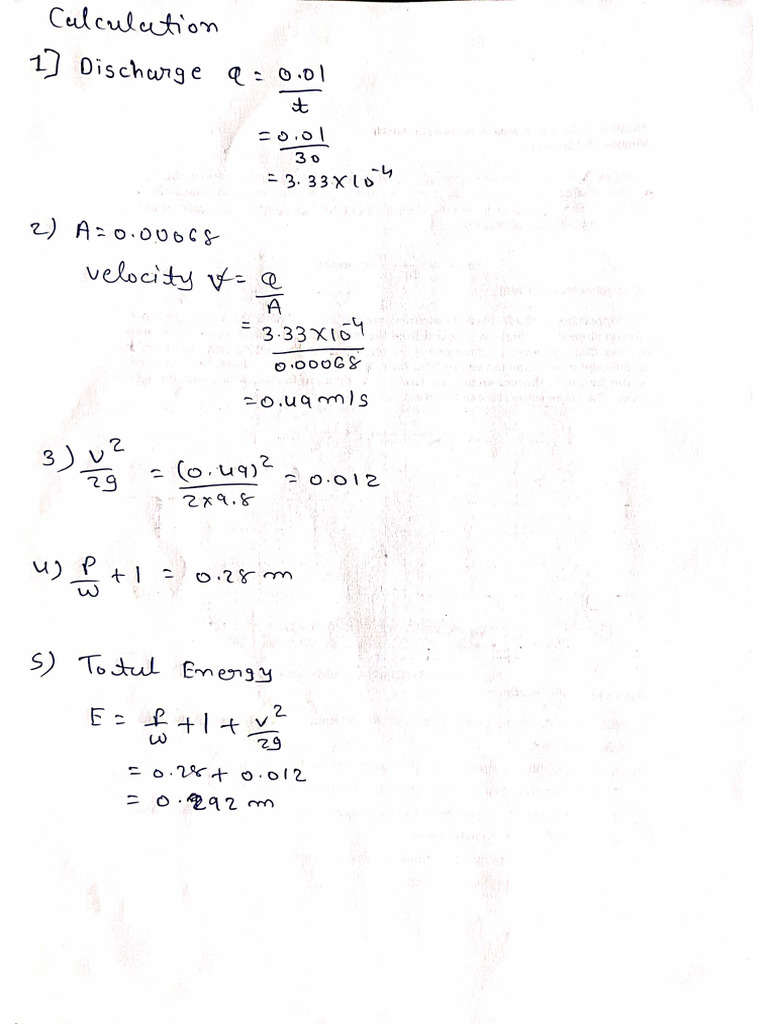 Calculation
1] Discharge Q = 0.01
t
= 0.01
30
= 3.33×10⁻⁴
2) A=0.00068
Velocity V = Q
A
= 3.33×10⁻⁴
0.00068
=0.49 m/s
3) v²
2g
= (0.49)²
2×9.8
= 0.012
4) P
w
+ 1 = 0.28 m
5) Total Energy
E = P
w
+ 1 + v²
2g
= 0.28 + 0.012
= 0.292 m